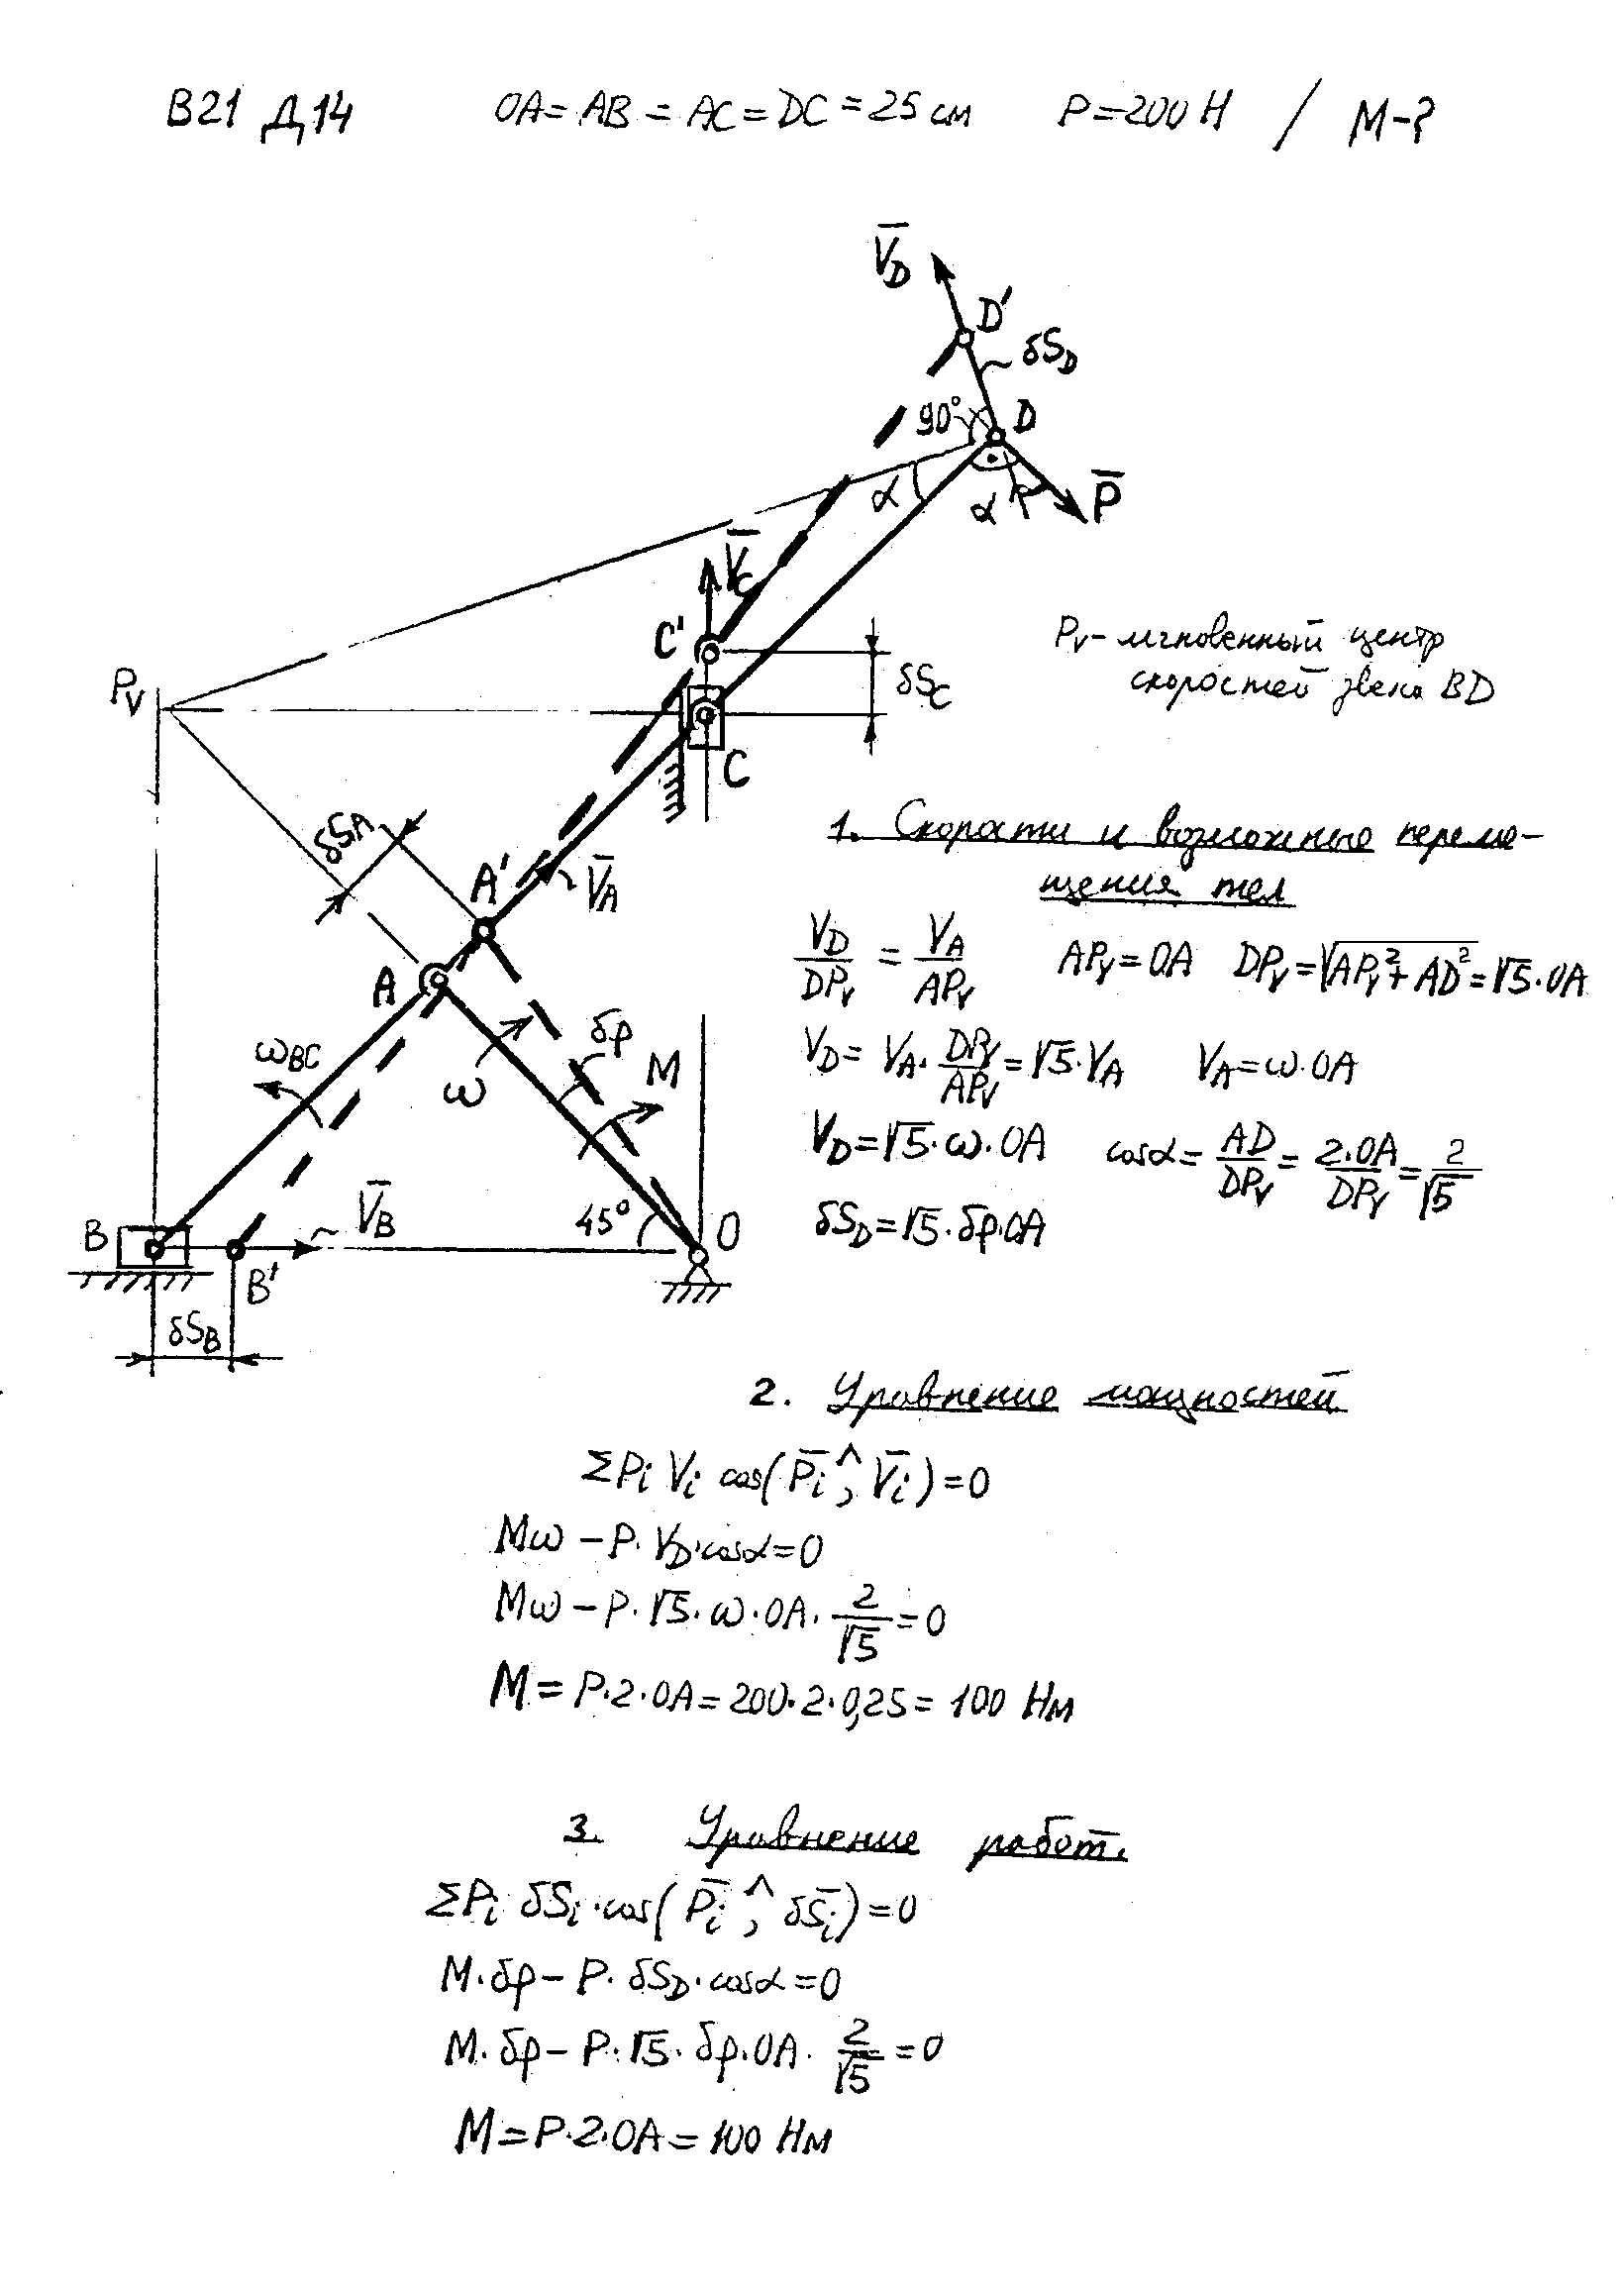 В21 Д14 OA = AB = AC = DC = 25 см P = 200 Н / M-?
V̄_D
D'
δS_D
90°
D
α
α
P̄
V̄_C
C'
δS_C
P_V
C
P_V - мгновенный центр
скоростей звена BD
δS_A
A'
V̄_A
A
ω_BC
ω
δφ
M
B
V̄_B
45°
O
B'
δS_B
1. Скорости и возможные переме-
щения тел
V_D/DP_V = V_A/AP_V AP_V = OA DP_V = √(AP_V² + AD²) = √5·OA
V_D = V_A · DP_V/AP_V = √5·V_A V_A = ω·OA
V_D = √5·ω·OA cosα = AD/DP_V = 2·OA/DP_V = 2/√5
δS_D = √5·δφ·OA
2. Уравнение мощностей
ΣP_i V_i cos(P̄_i ^, V̄_i) = 0
Mω - P·V_D·cosα = 0
Mω - P·√5·ω·OA·2/√5 = 0
M = P·2·OA = 200·2·0,25 = 100 Нм
3. Уравнение работ.
ΣP_i δS_i·cos(P̄_i ^, δS̄_i) = 0
M·δφ - P·δS_D·cosα = 0
M·δφ - P·√5·δφ·OA·2/√5 = 0
M = P·2·OA = 100 Нм